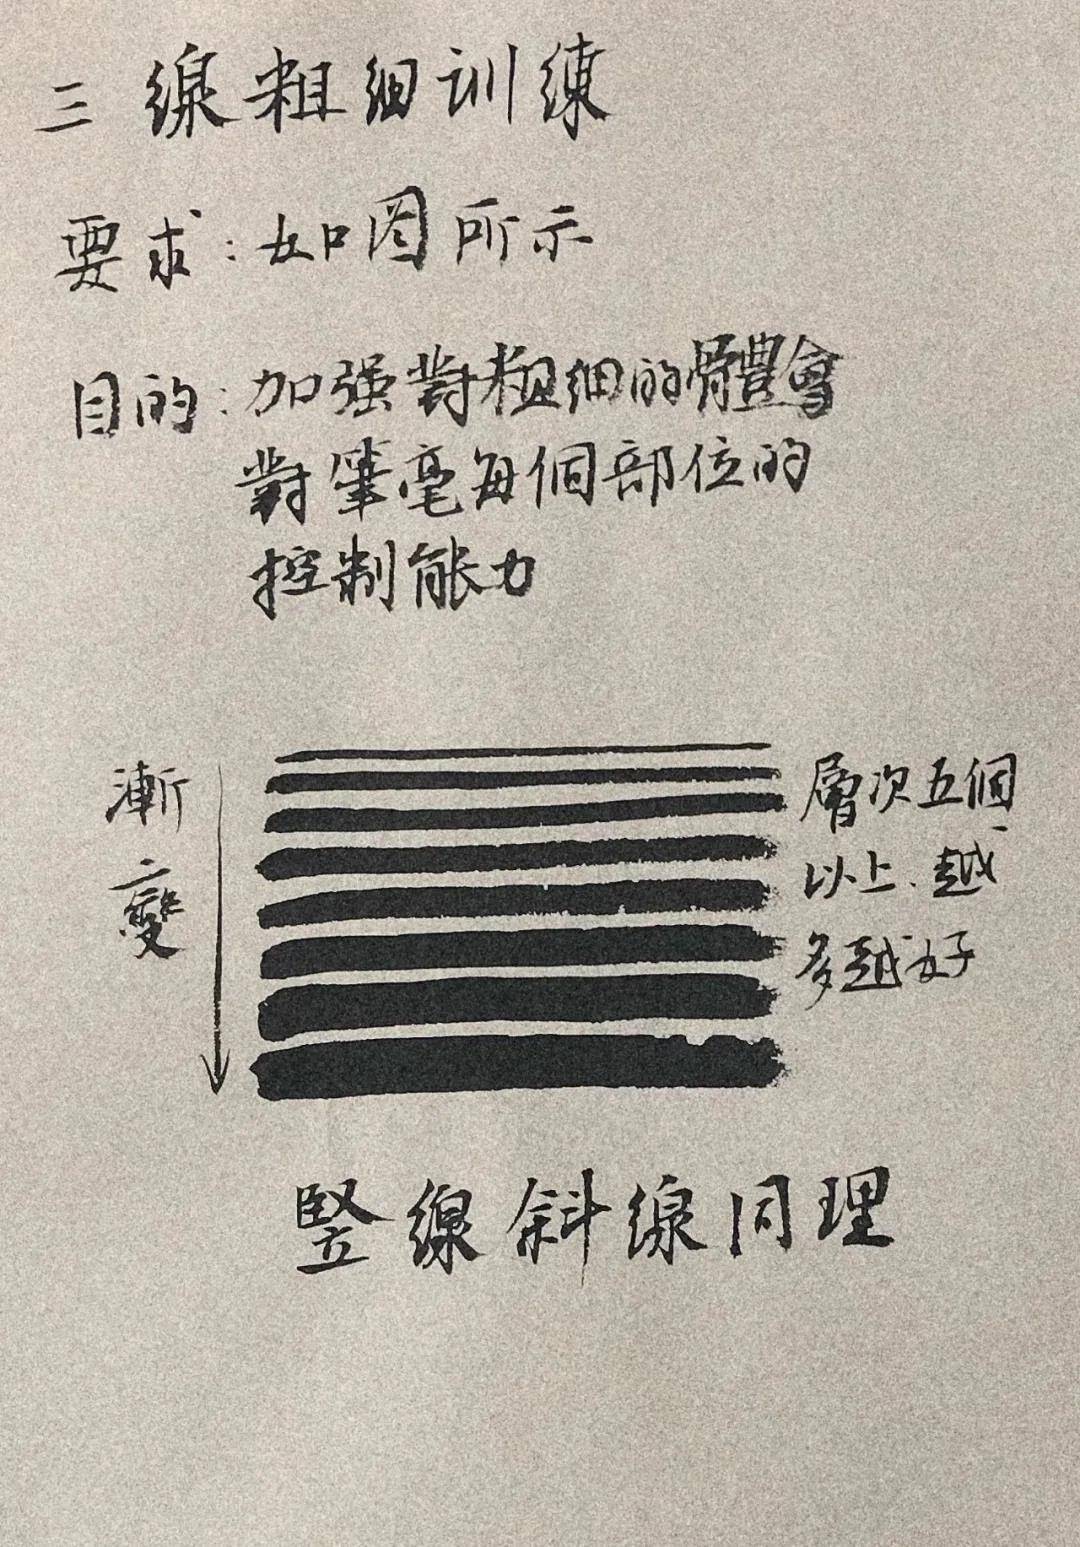 三 線粗細訓練
要求：如图所示
目的：加强對粗細的體會
對筆毫每個部位的
控制能力
漸變
層次五個
以上、越
多越好
竪線斜線同理